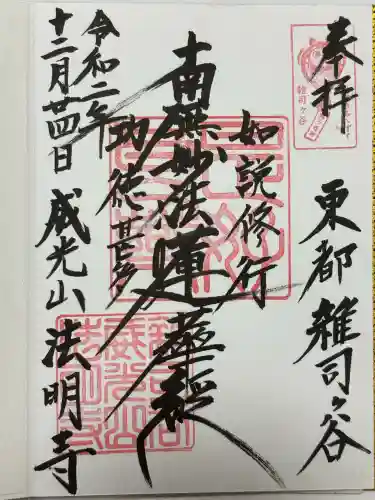 奉拝
東都 雑司ヶ谷
如説修行
南無妙法蓮華経
功徳甚多
令和二年
十二月廿四日
威光山 法明寺
雑司ヶ谷